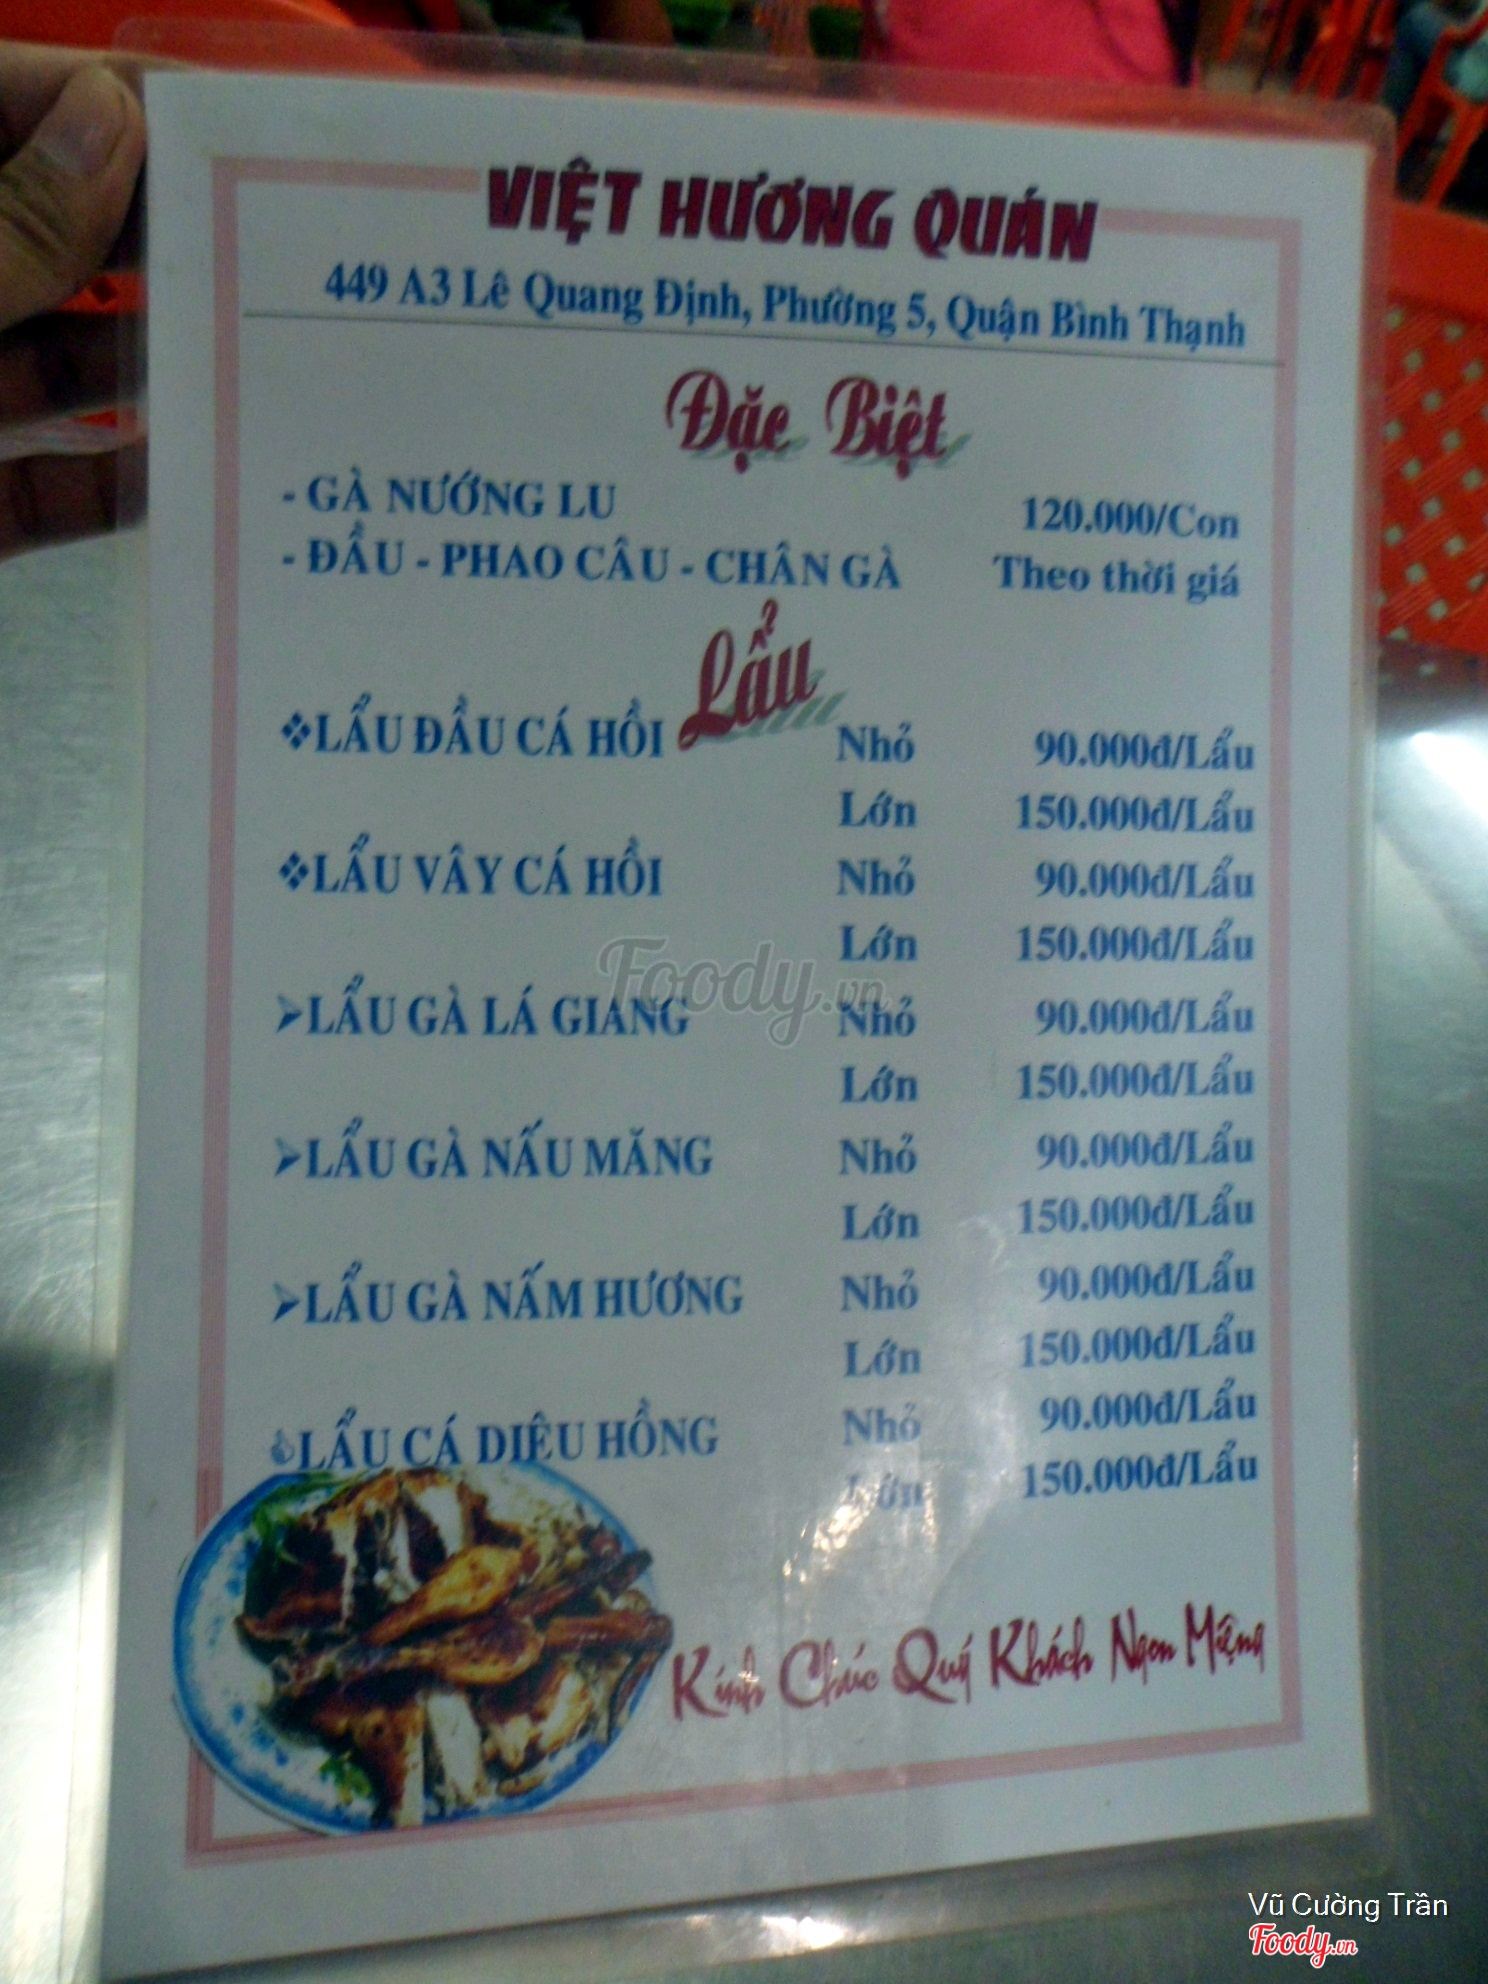 VIỆT HƯƠNG QUÁN
449 A3 Lê Quang Định, Phường 5, Quận Bình Thạnh
Đặc Biệt
- GÀ NƯỚNG LU 120.000/Con
- ĐẦU - PHAO CÂU - CHÂN GÀ Theo thời giá
Lẩu
❖LẨU ĐẦU CÁ HỒI Nhỏ 90.000đ/Lẩu
Lớn 150.000đ/Lẩu
❖LẨU VÂY CÁ HỒI Nhỏ 90.000đ/Lẩu
Lớn 150.000đ/Lẩu
Foody.vn
➢LẨU GÀ LÁ GIANG Nhỏ 90.000đ/Lẩu
Lớn 150.000đ/Lẩu
➢LẨU GÀ NẤU MĂNG Nhỏ 90.000đ/Lẩu
Lớn 150.000đ/Lẩu
➢LẨU GÀ NẤM HƯƠNG Nhỏ 90.000đ/Lẩu
Lớn 150.000đ/Lẩu
LẨU CÁ DIÊU HỒNG Nhỏ 90.000đ/Lẩu
Lớn 150.000đ/Lẩu
Kính Chúc Quý Khách Ngon Miệng
Vũ Cường Trần
Foody.vn